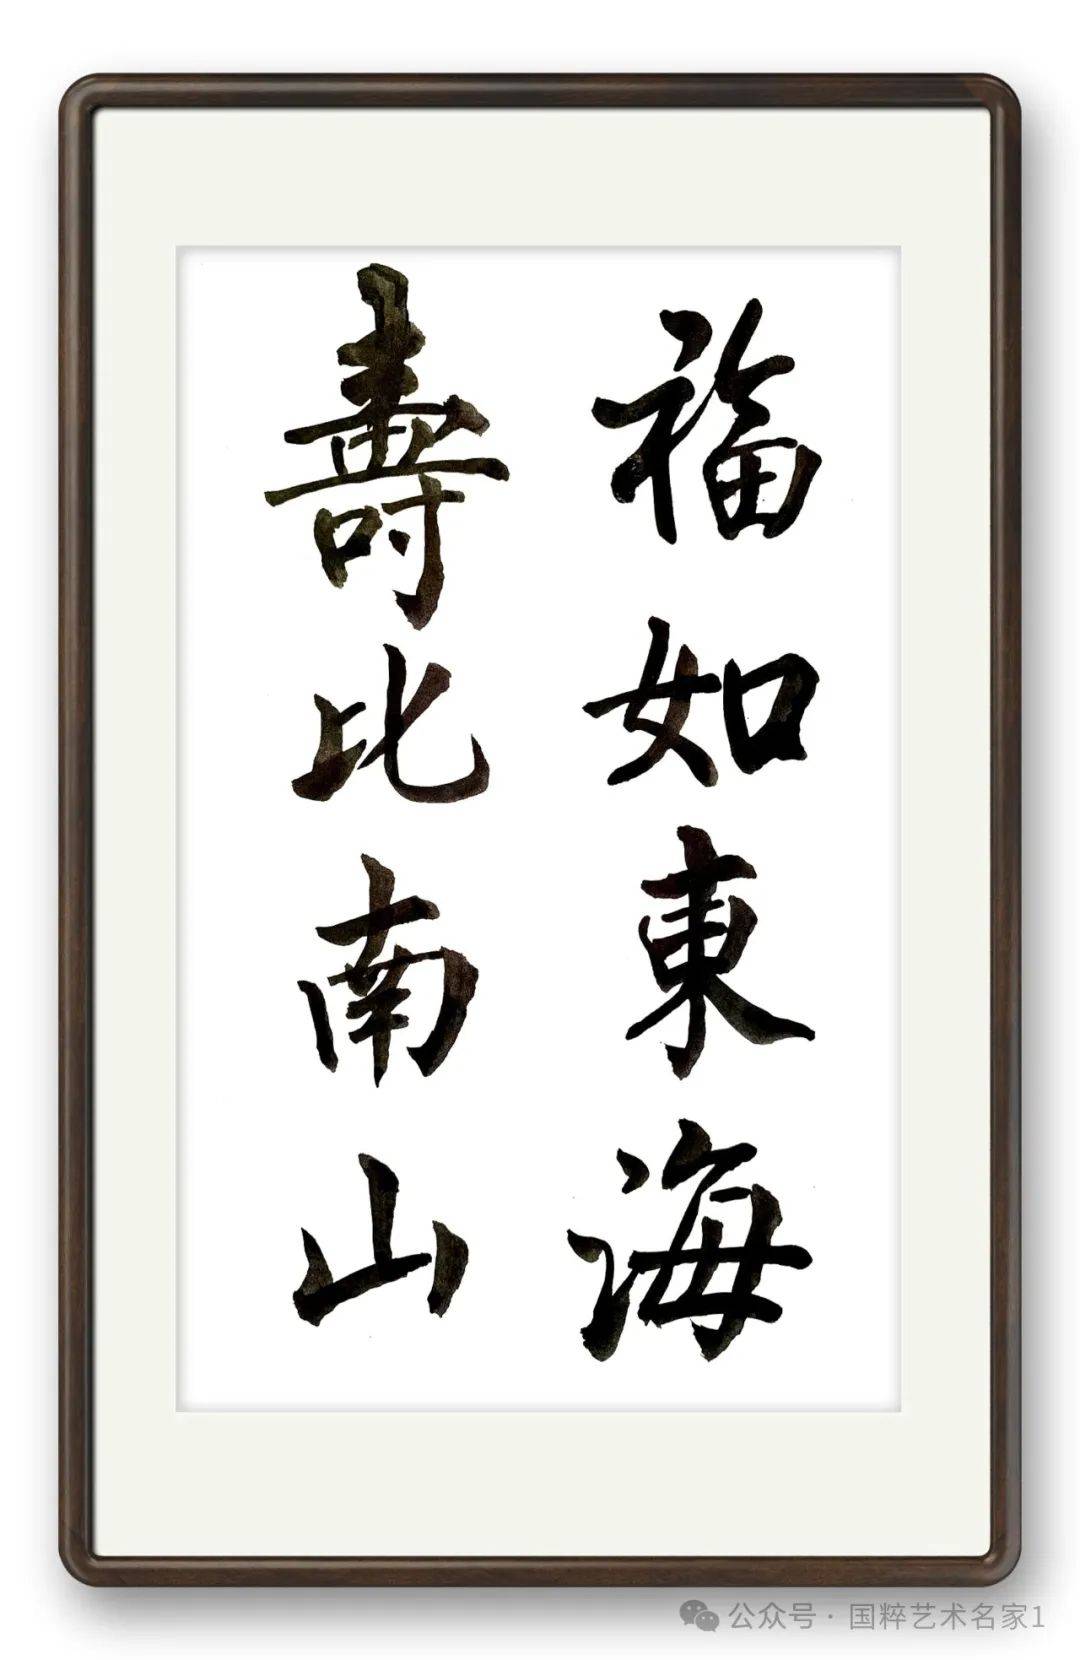 福如東海
壽比南山
公众号·国粹艺术名家1